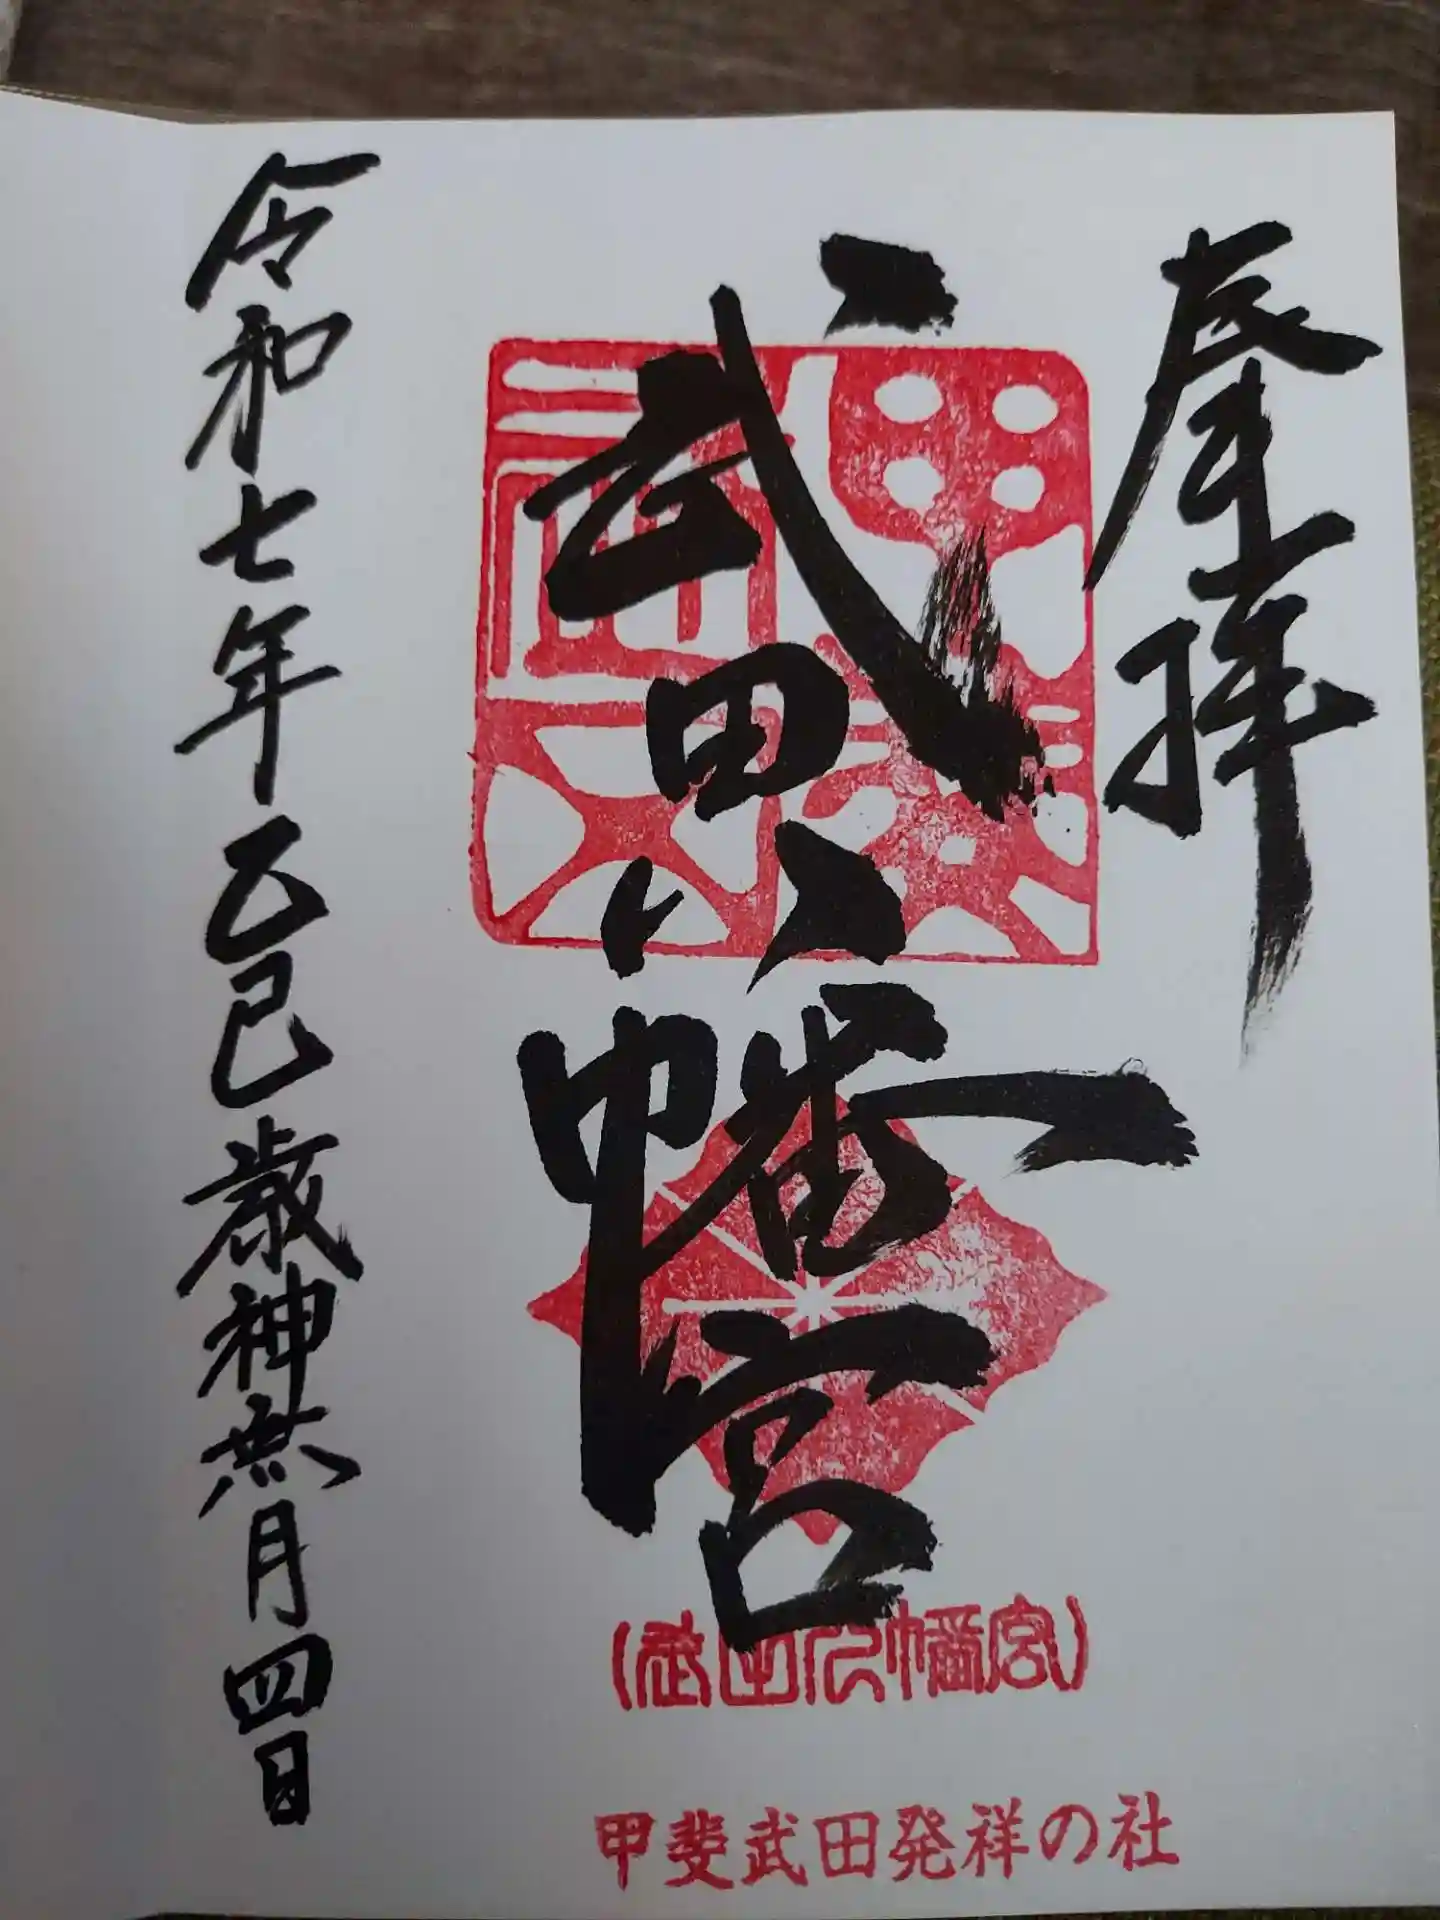 奉拝
武田八幡宮
(武田八幡宮)
甲斐武田発祥の社
令和七年乙巳歳神無月四日